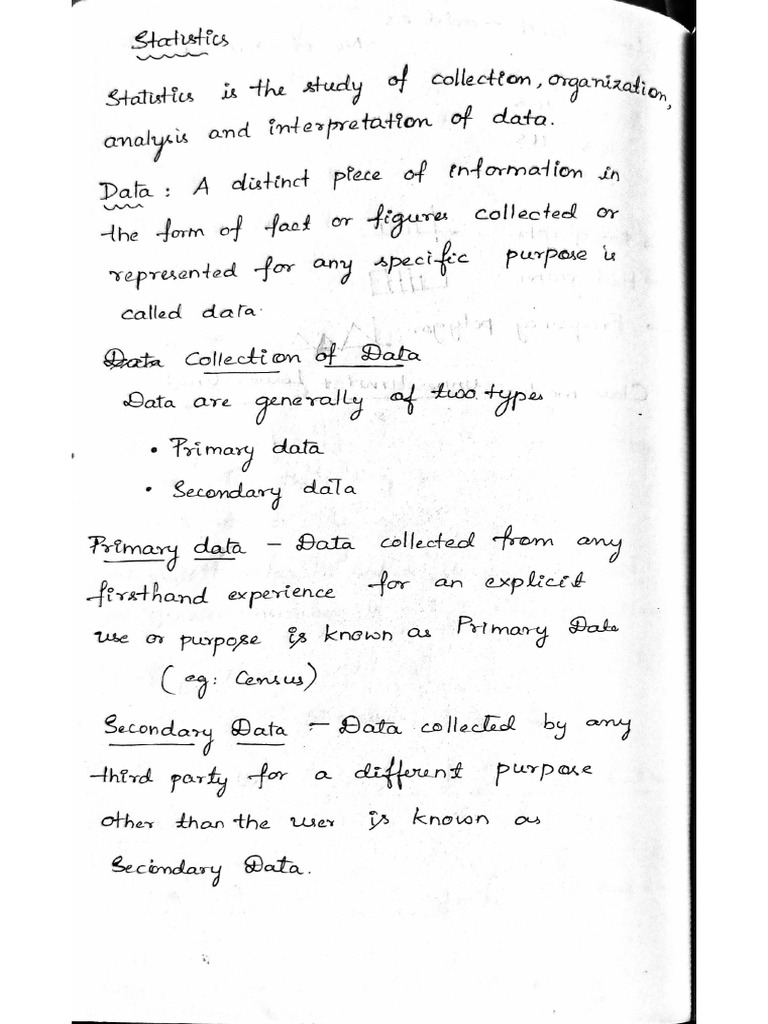 Statistics
Statistics is the study of collection, organization,
analysis and interpretation of data.
Data : A distinct piece of information in
the form of fact or figures collected or
represented for any specific purpose is
called data.
Data Collection of Data
Data are generally of two types
• Primary data
• Secondary data
Primary data – Data collected from any
firsthand experience for an explicit
use or purpose is known as Primary Data
( eg: Census)
Secondary Data – Data collected by any
third party for a different purpose
other than the user is known as
Secondary Data.